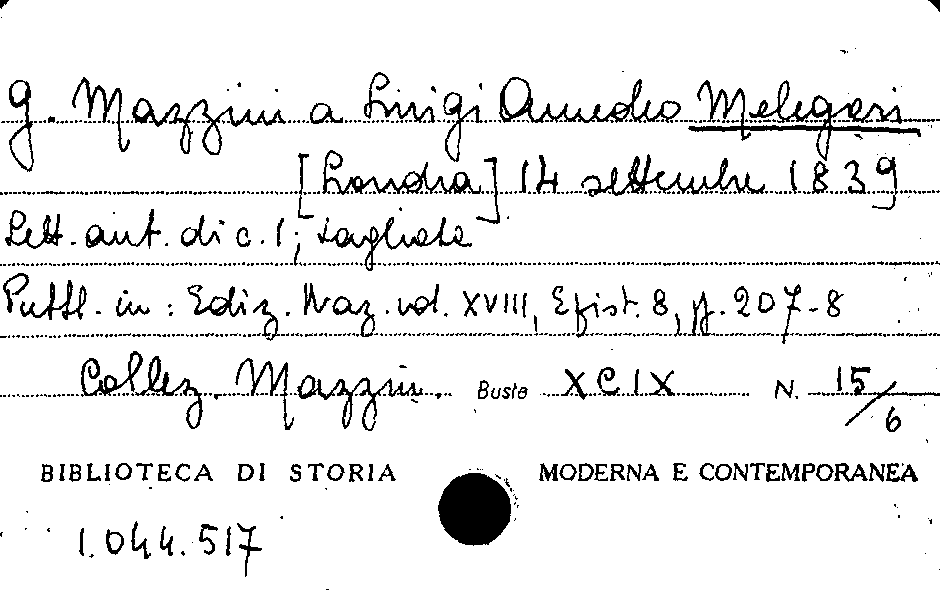 G. Mazzini a Luigi Amedeo Melegari
[Londra] 14 settembre 1839
Lett. aut. di c. 1; tagliata
Pubbl. in: Ediz. Naz. vol. XVIII, Epist. 8, p. 207-8
Collez. Mazzini. Busta XCIX N. 15/6
BIBLIOTECA DI STORIA MODERNA E CONTEMPORANEA
1.044.517